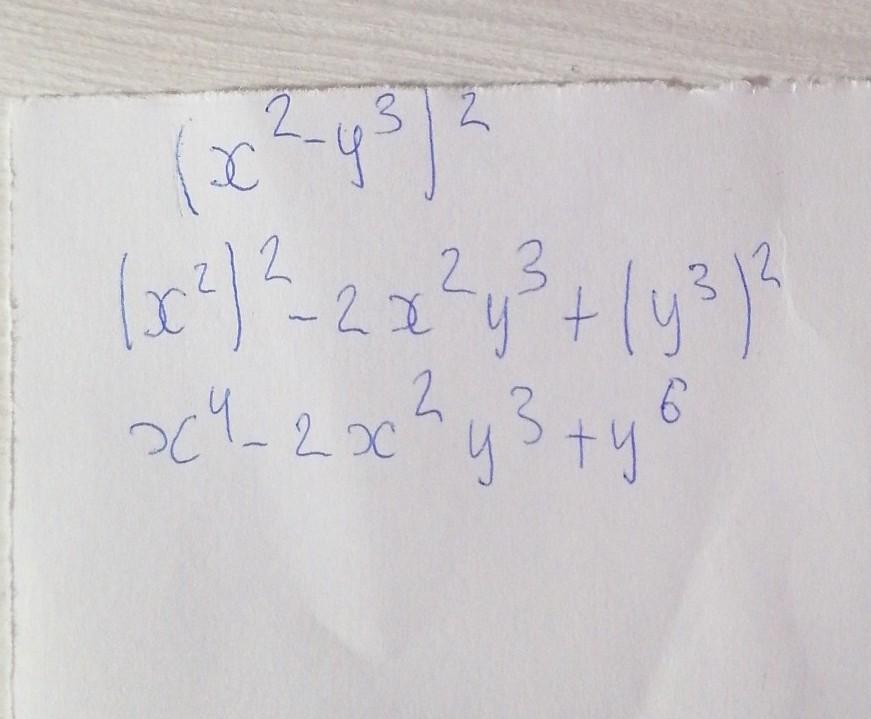 (x²-y³)²
(x²)²-2x²y³+(y³)²
x⁴-2x²y³+y⁶